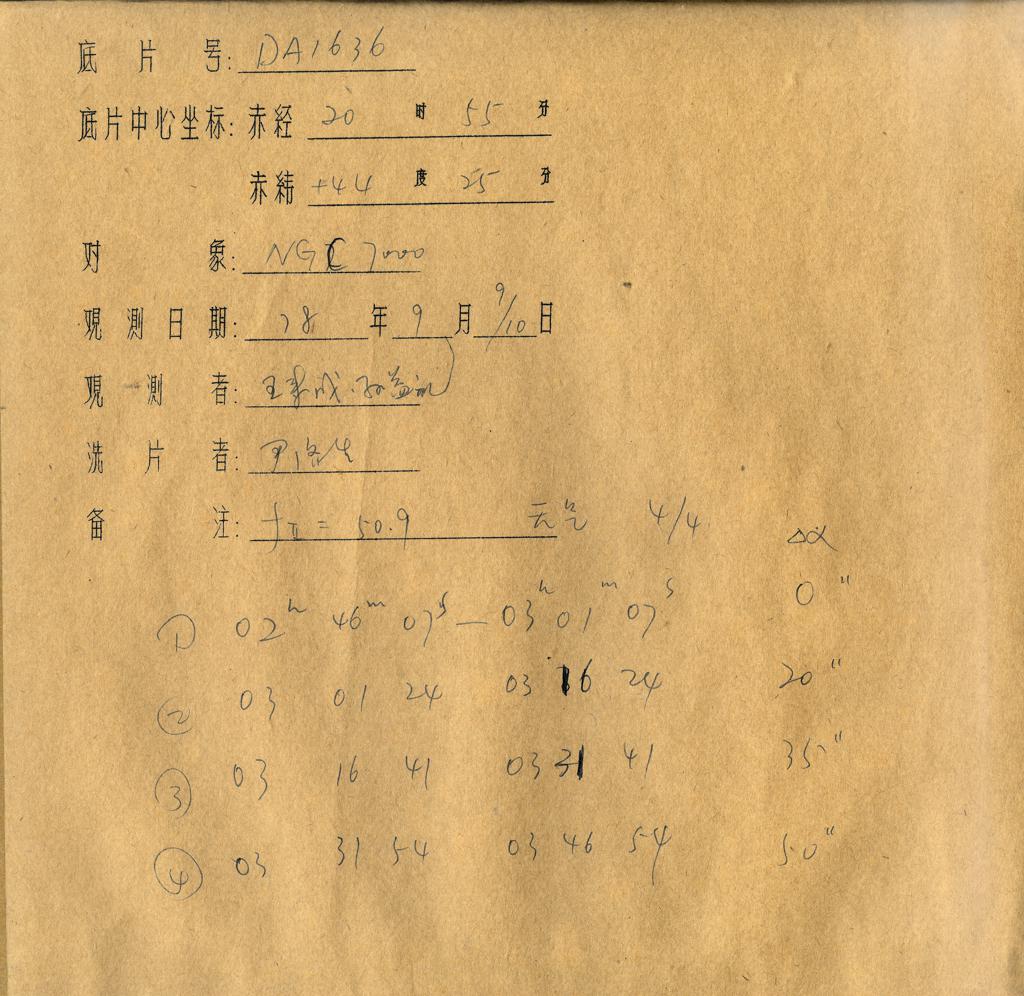 底片号: DA1636
底片中心坐标: 赤経 20 时 55 分
赤緯 +44 度 25 分
对象: NGC 7000
观测日期: 78 年 9 月 9/10 日
观测者:
洗片者:
备注: fII = 50.9 天气 4/4
Δα
① 02h 46m 07s — 03h 01m 07s 0"
② 03 01 24 03 16 24 20"
③ 03 16 41 03 31 41 35"
④ 03 31 54 03 46 54 50"